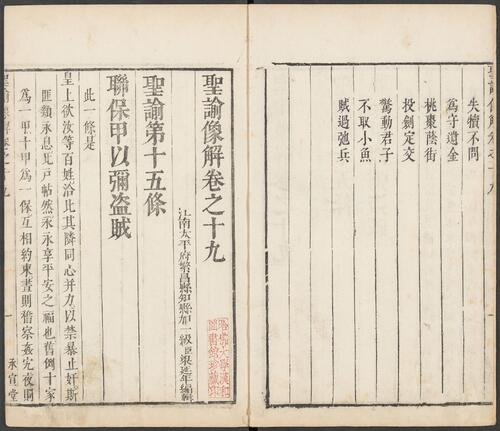 聖諭像解卷之十八
失犢不問
為守遺金
桃棗蔭街
投劍定交
驚動君子
不取小魚
賊過弛兵
聖諭像解卷之十九
江南太平府繁昌縣知縣加一級臣梁延年編輯
哈佛大學漢和圖書館珍藏印
聖諭第十五條
聯保甲以彌盗賊
此一條是
皇上欲汝等百姓洽比其隣同心并力以禁暴止奸斯
匪類永息比戶帖然永永享平安之福也舊例十家
為一甲十甲為一保互相約束晝則稽察姦宄夜則
聖諭像解卷之十九
一
承宣堂